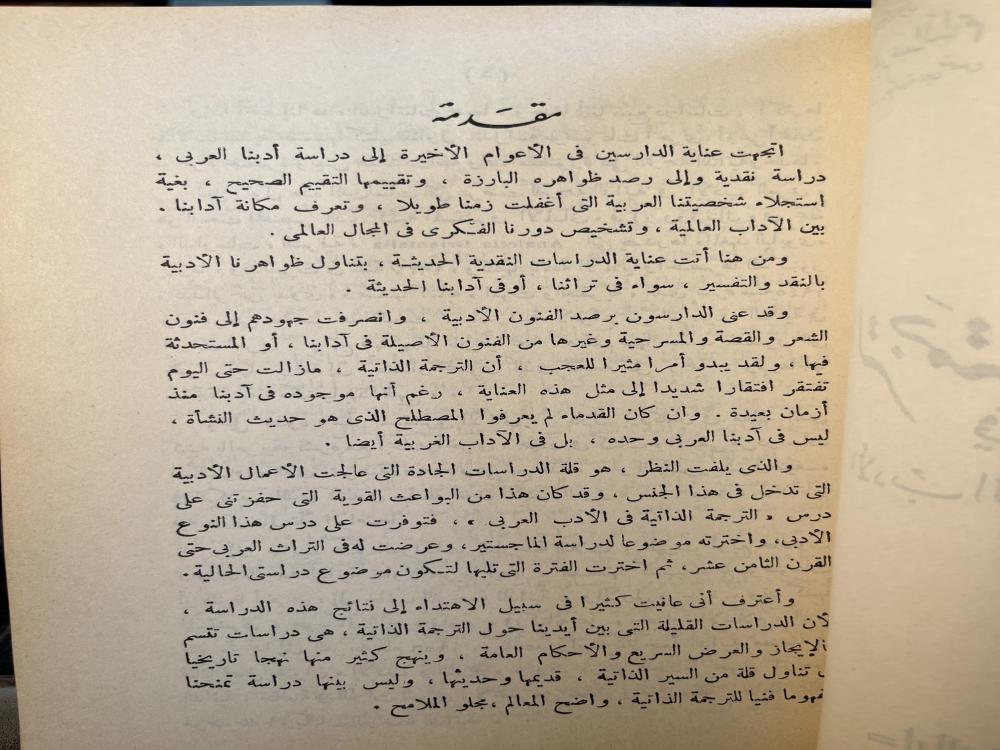 مقدمة
اتجهت عناية الدارسين فى الأعوام الأخيرة إلى دراسة أدبنا العربى ،
دراسة نقدية وإلى رصد ظواهره البارزة ، وتقييمها التقييم الصحيح ، بغية
استجلاء شخصيتنا العربية التى أغفلت زمنا طويلا ، وتعرف مكانة آدابنا .
بين الآداب العالمية ، وتشخيص دورنا الفكرى فى المجال العالمى .
ومن هنا أتت عناية الدراسات النقدية الحديثة ، بتناول ظواهرنا الأدبية
بالنقد والتفسير ، سواء فى تراثنا ، أوفى آدابنا الحديثة .
وقد عنى الدارسون برصد الفنون الأدبية ، وانصرفت جهودهم إلى فنون
الشعر والقصة والمسرحية وغيرها من الفنون الأصيلة فى آدابنا ، أو المستحدثة
فيها ، ولقد يبدو أمرا مثيرا للعجب ، أن الترجمة الذاتية ، مازالت حتى اليوم
تفتقر افتقارا شديدا إلى مثل هذه العناية ، رغم أنها موجوده فى آدبنا منذ
أزمان بعيدة . وان كان القدماء لم يعرفوا المصطلح الذى هو حديث النشأة ،
ليس فى آدبنا العربى وحده ، بل فى الآداب الغربية أيضا .
والذى يلفت النظر ، هو قلة الدراسات الجادة التى عالجت الأعمال الأدبية
التى تدخل فى هذا الجنس ، وقد كان هذا من البواعث القوية التى حفزتنى على
درس « الترجمة الذاتية فى الأدب العربى » ، فتوفرت على درس هذا النوع
الأدبى، واخترته موضوعا لدراسة الماجستير، وعرضت له فى التراث العربى حتى
القرن الثامن عشر، ثم اخترت الفترة التى تليها لتكون موضوع دراستى الحالية.
وأعترف أنى عانيت كثيرا فى سبيل الاهتداء إلى نتائج هذه الدراسة ،
لأن الدراسات القليلة التى بين أيدينا حول الترجمة الذاتية ، هى دراسات تقسم
بالإيجاز والعرض السريع والأحكام العامة ، وينهج كثير منها نهجا تاريخيا
تناول قلة من السير الذاتية ، قديمها وحديثها ، وليس بينها دراسة تمنحنا
مفهوما فنيا للترجمة الذاتية ، واضح المعالم ،مجلو الملامح .